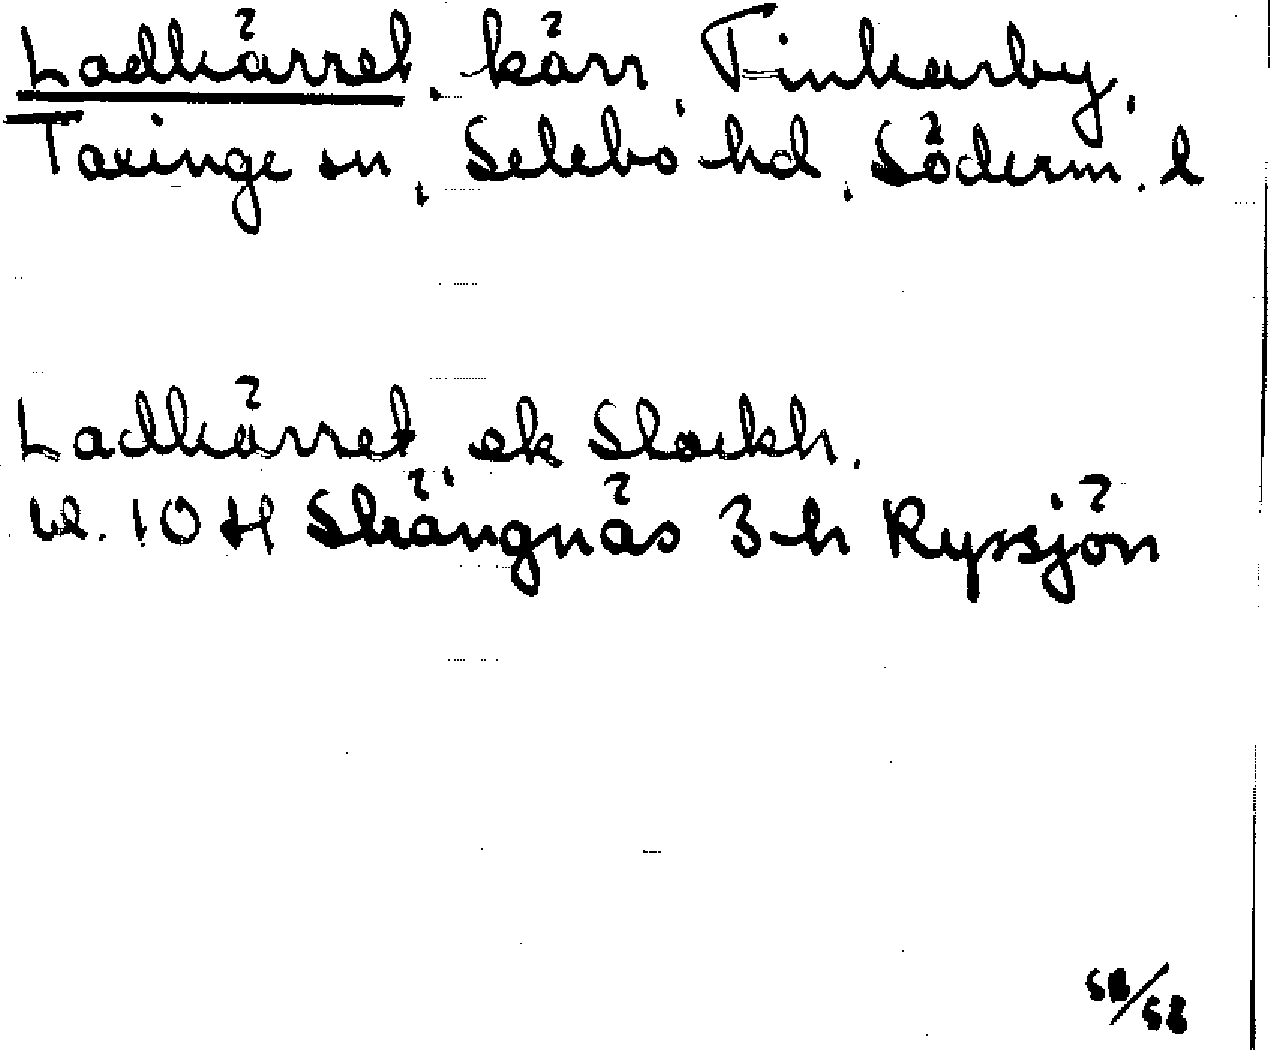 Ladkärret, kärr, Finkarby,
Taxinge sn, Selebo hd, Söderm. l
Ladkärret ek Stockh.
bl. 10 H Strängnäs 3-h Ryssjön